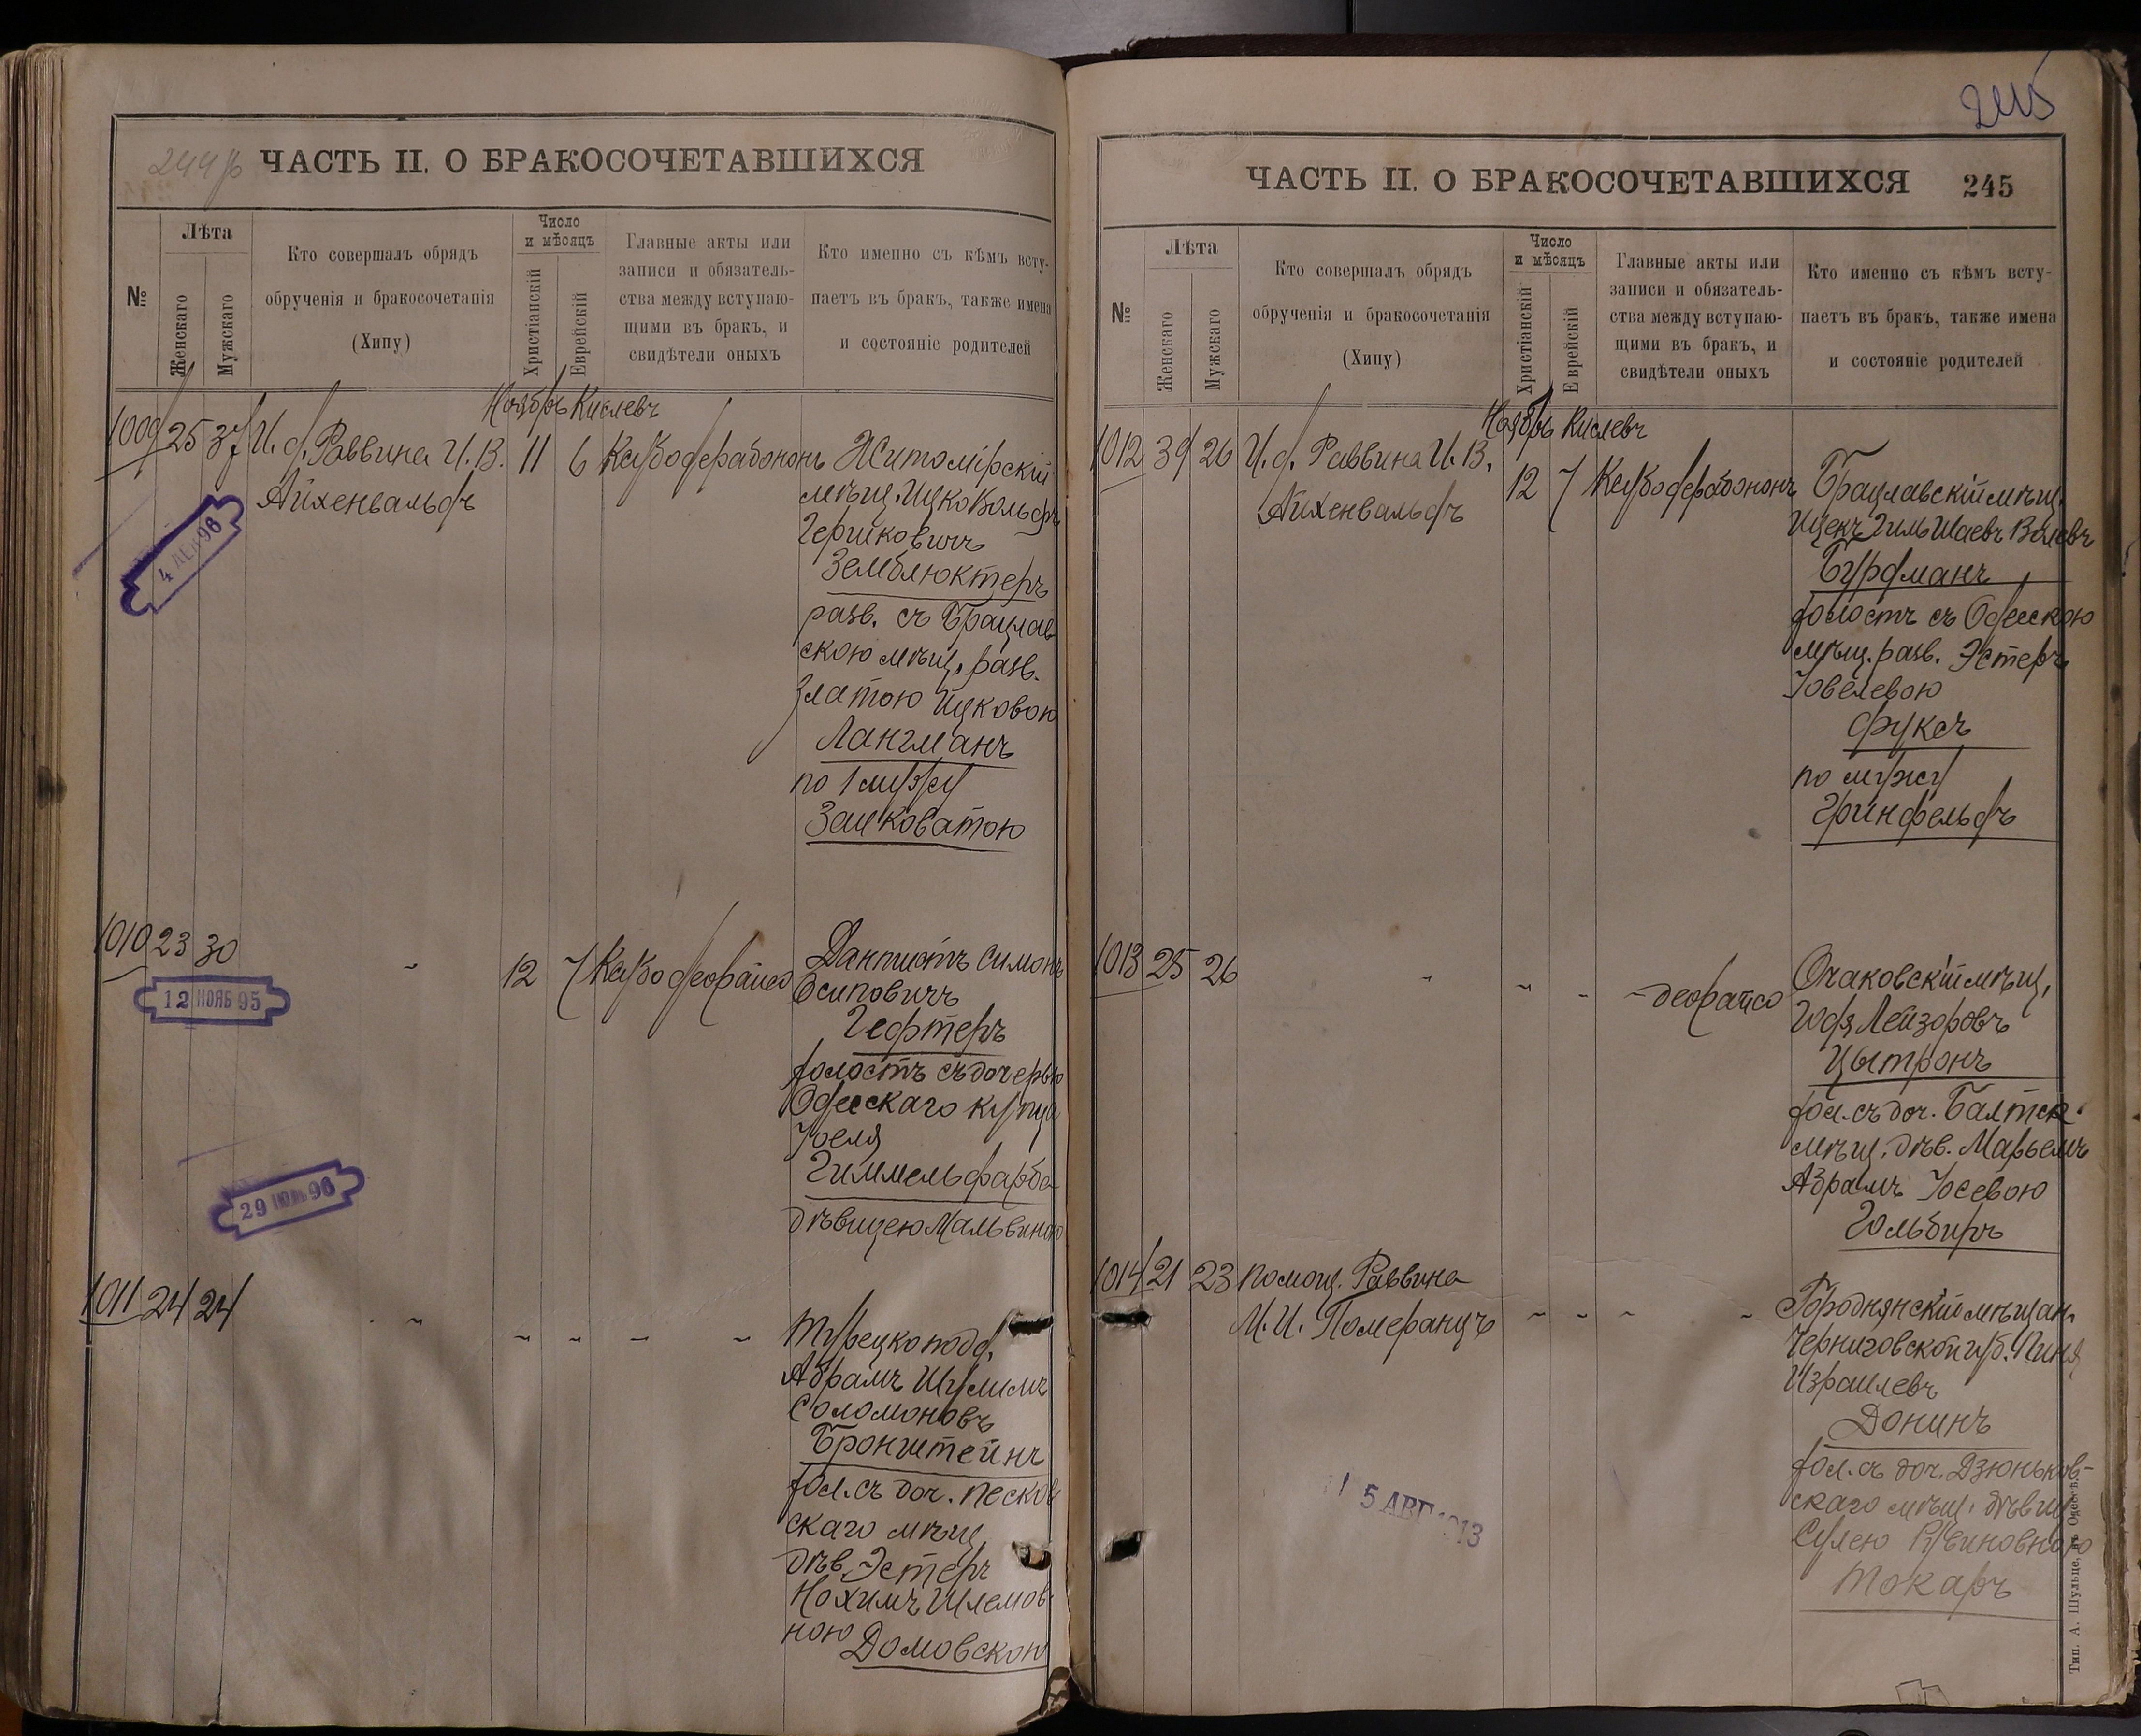 244 об
ЧАСТЬ II. О БРАКОСОЧЕТАВШИХСЯ
№
Лѣта
Женскаго
Мужскаго
Кто совершалъ обрядъ
обрученія и бракосочетанія
(Хипу)
Число
и мѣсяцъ
Христіанскій
Еврейскій
Главные акты или
записи и обязатель-
ства между вступаю-
щими въ бракъ, и
свидѣтели оныхъ
Кто именно съ кѣмъ всту-
паетъ въ бракъ, также имена
и состояніе родителей
Ноябрь Кислевъ
1009 25 37 И. д. Раввина И. В. 11 6 Каубодерабононъ Житомірскій
Айхенвальдъ
мѣщ. Ицко Вольфъ
Гершковичъ
Земблюктеръ
разв. съ Брацлав
скою мѣщ. разв.
Златою Ицковою
Лангманъ
по 1 мужу
Зашковатою
4
96
1010 23 30 " 12 7 Каубо деорайсо Дантистъ Симонъ
Осиповичъ
Гефтеръ
холостъ съ дочерью
Одесскаго купца
Іоеля
Гиммельфарба
дѣвицею Мальвиною
12 НОЯБ 95
29 96
1011 24 24 " " " " " Турецкоподд.
Абрамъ Шулимъ
Соломоновъ
Бронштейнъ
хол. съ доч. песков
скаго мѣщ
дѣв. Эстеръ
Нохимъ Шлемов
ною Домовскою
245
ЧАСТЬ II. О БРАКОСОЧЕТАВШИХСЯ 245
№
Лѣта
Женскаго
Мужскаго
Кто совершалъ обрядъ
обрученія и бракосочетанія
(Хипу)
Число
и мѣсяцъ
Христіанскій
Еврейскій
Главные акты или
записи и обязатель-
ства между вступаю-
щими въ бракъ, и
свидѣтели оныхъ
Кто именно съ кѣмъ всту-
паетъ въ бракъ, также имена
и состояніе родителей
Ноябрь Кислевъ
1012 39 26 И. д. Раввина И. В. 12 7 Каубодерабононъ Брацлавскій мѣщ.
Айхенвальдъ
Ицекъ Гиль Шаевъ Волевъ
Бурдманъ
холостъ съ Одесскою
мѣщ. разв. Эстеръ
Іовелевою
Фуксъ
по мужу
Гринфельдъ
1013 25 26 " " " " деорайсо Очаковскій мѣщ.
Годя Лейзоровъ
Цытронъ
хол. съ доч. Балтск.
мѣщ. дѣв. Марьемъ
Абрамъ Іосевою
Гольбиръ
1014 21 23 помощ. Раввина
М. И. Померанцъ " " " " Городнянскій мѣщан.
Черниговской губ. Пиня
Израилевъ
Донинъ
хол. съ доч. Дзюньков-
скаго мѣщ. дѣвиц
Сулею Рувиновною
Токаръ
5 АВГ 1913
Тип. А. Шульце, въ Одессѣ.